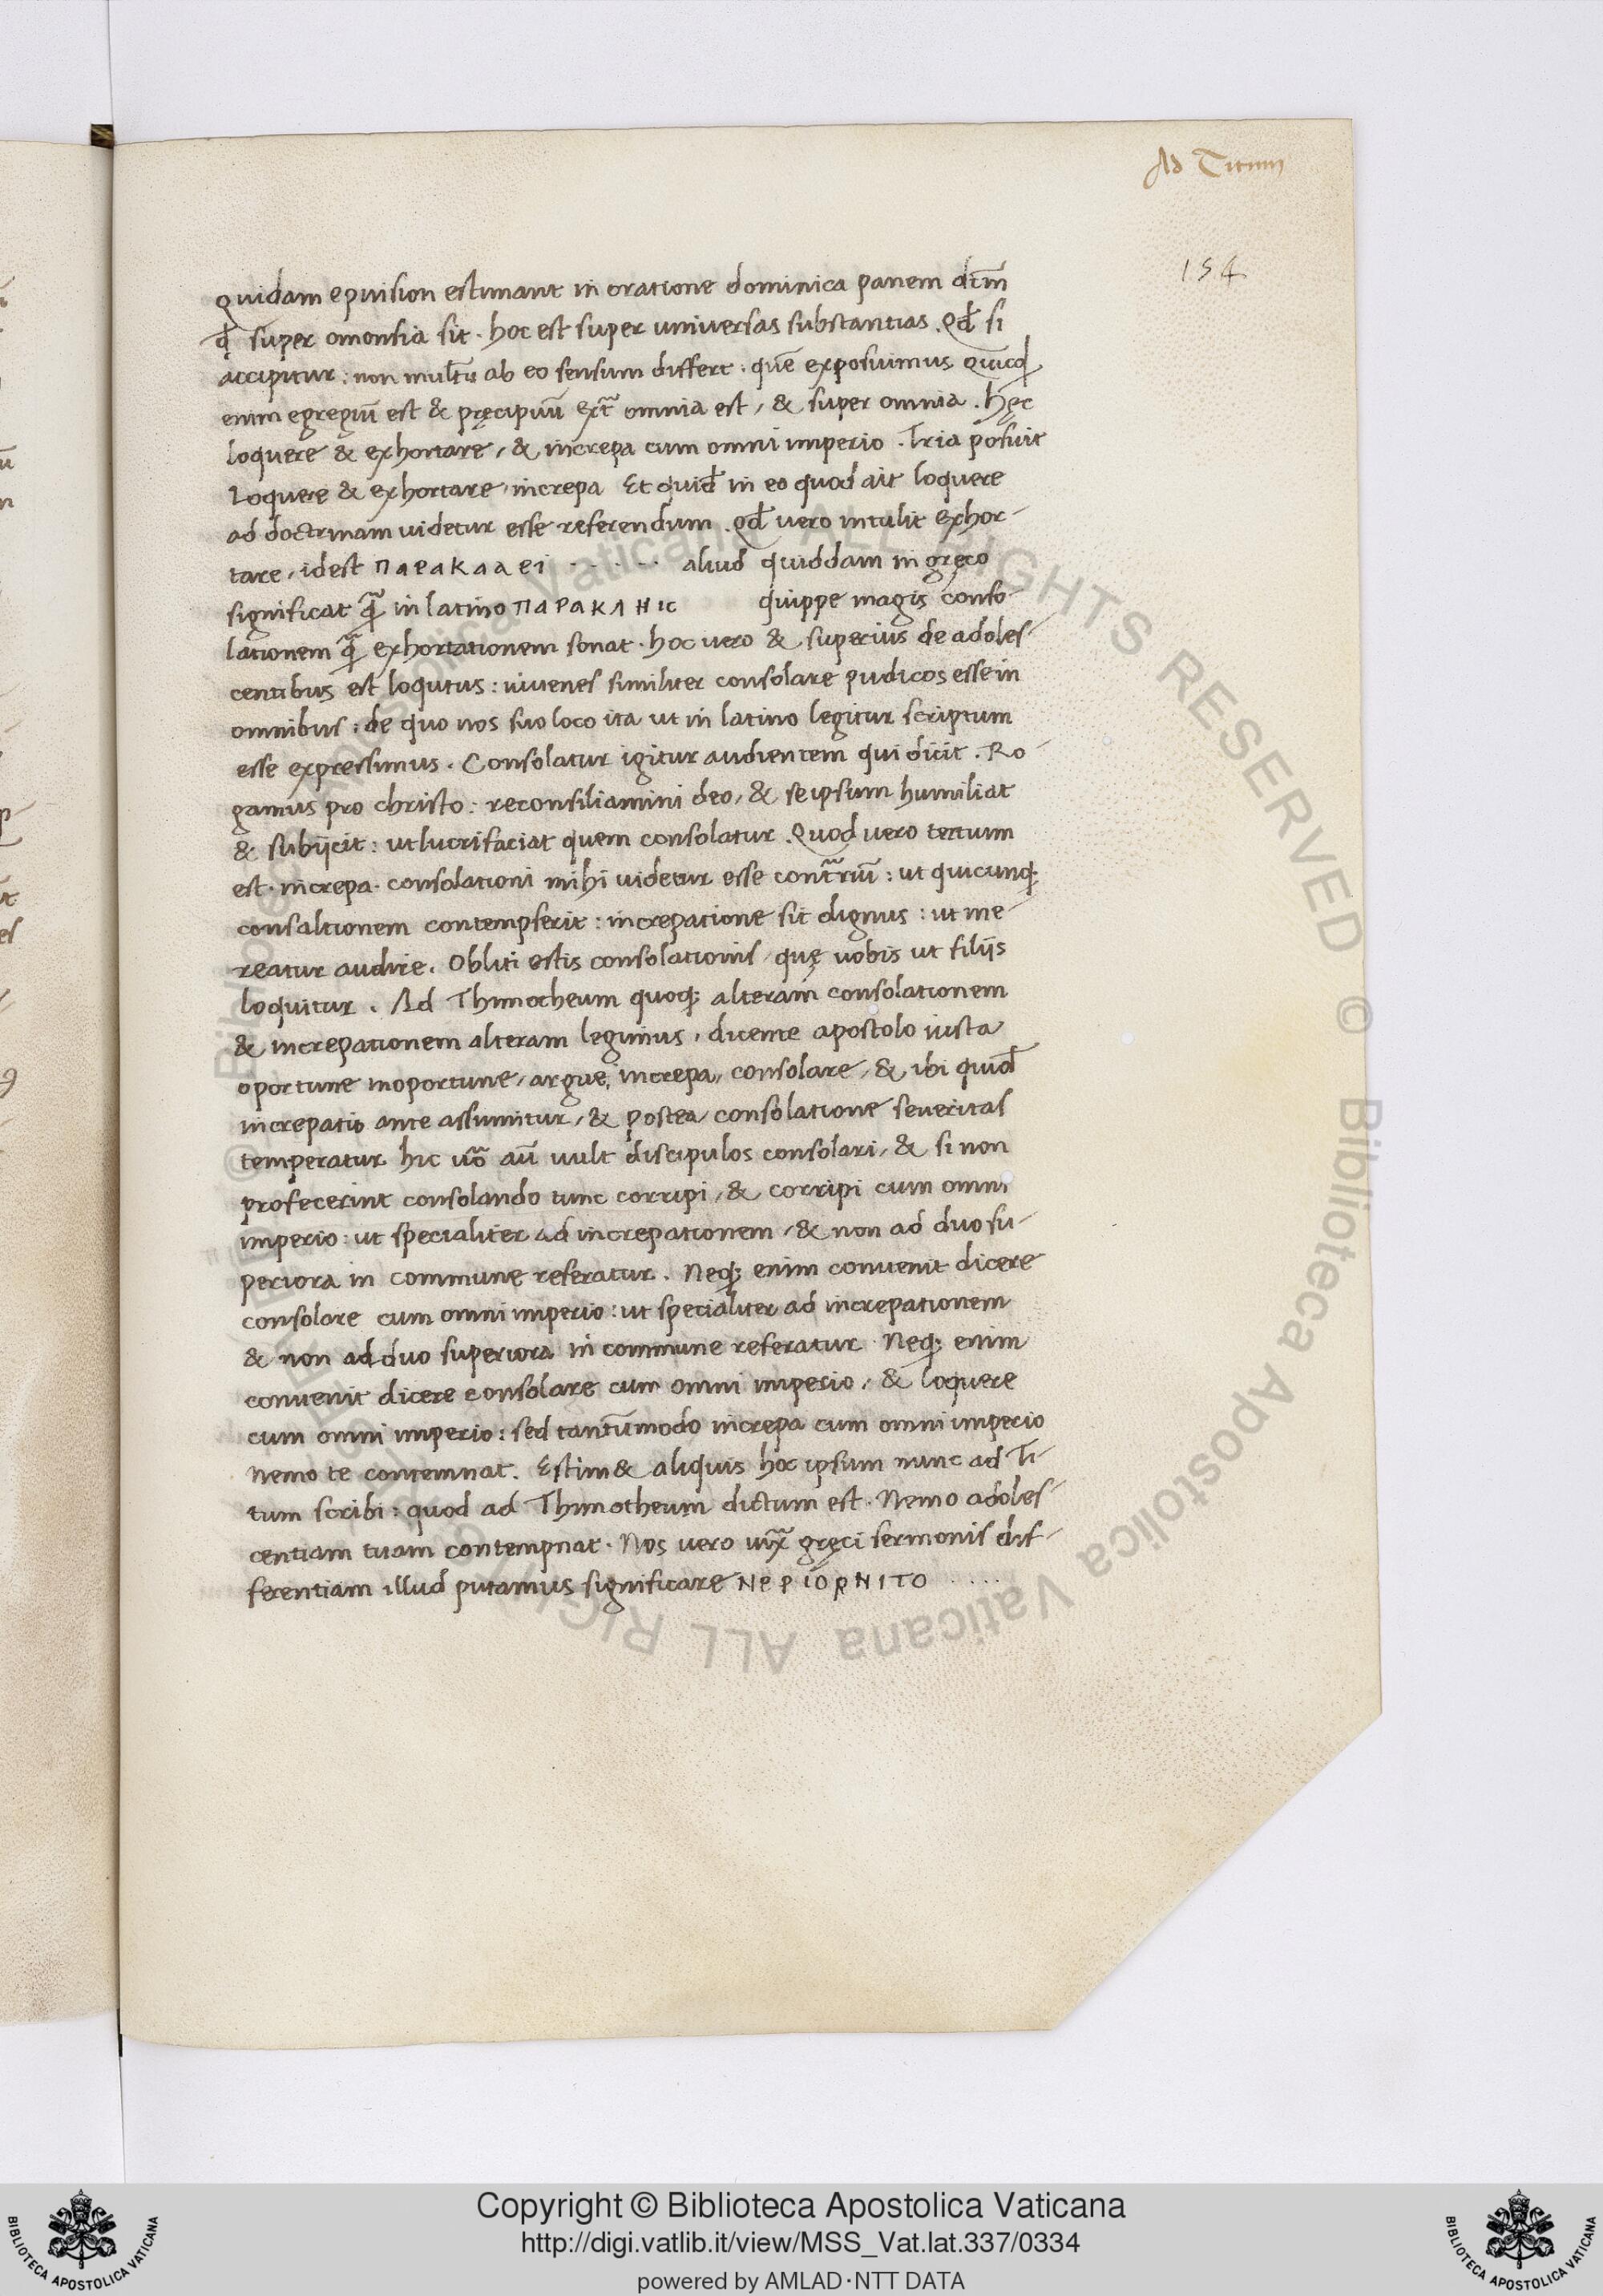 Ad Titum
154
Quidam epiusion estimant in oratione dominica panem dictm̄
q̄ super omonsia sit. hoc est super universas substantias. Qd̄ si
accipitur: non multū ab eo sensum differt: quē exposuimus Quicqd̄
enim egregiū est & pręcipuū extr̄a omnia est, & super omnia. hęc
loquere & exhortare, & increpa cum omni imperio. Tria posuit
Loquere & exhortare, increpa Et quid̄ in eo quod ait loquere
ad doctrinam videtur esse referendum. Qd̄ vero intulit exhor-
tare, idest παρακααει · · · · · · aliud quiddam in gręco
significat q̄ in latino παρακλΗις quippe magis conso-
lationem q̄ exhortationem sonat. hoc vero & superius de adoles-
centibus est loqutus: iuvenes similiter consolare pudicos esse in
omnibus: de quo nos suo loco ita ut in latino legitur scriptum
esse expressimus. Consolatur igitur audientem qui dicit. Ro-
gamus pro christo: reconsiliamini deo, & se ipsum humiliat
& subijcit: ut lucrifaciat quem consolatur. Quod vero tertium
est. increpa. consolationi mihi videtur esse contr̄riū: ut quicunq;
consaltionem contempserit: increpatione sit dignus: ut me-
reatur audire. Obliti estis consolationis, quę vobis ut filijs
loquitur. Ad Thimotheum quoq; alteram consolationem
& increpationem alteram legimus, dicente apostolo iusta
oportune inoportune, argue, increpa, consolare, & ibi quid̄
increpatio ante assumitur, & postea consolatione severitas
temperatur hic vō aū vult discipulos consolari, & si non
profecerint consolando tunc corripi, & corripi cum omni
imperio: ut specialiter ad increpationem, & non ad duo su-
periora in commune referatur. Neq; enim convenit dicere
consolare cum omni imperio: ut specialiter ad increpationem
& non ad duo superiora in commune referatur. Neq; enim
convenit dicere consolare cum omni imperio, & loquere
cum omni imperio: sed tantūmodo increpa cum omni imperio
Nemo te contemnat. Estim& aliquis hoc ipsum nunc ad Ti-
tum scribi: quod ad Thimotheum dictum est. Nemo adoles-
centiam tuam contempnat. Nos vero gręci sermonis dif-
ferentiam illud putamus significare ΝεΡιΟρΝΙΤΟ · · · ·
Copyright © Biblioteca Apostolica Vaticana
http://digi.vatlib.it/view/MSS_Vat.lat.337/0334
powered by AMLAD·NTT DATA